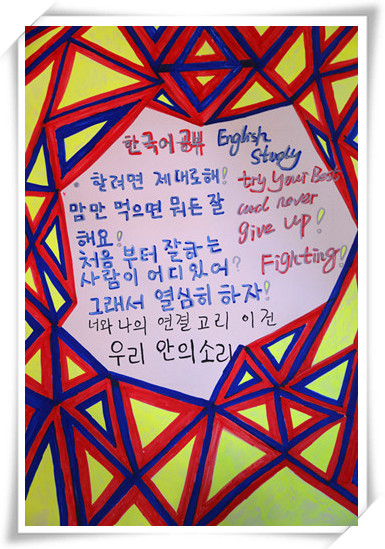 한국어 공부
English
Study
• 할려면 제대로해!
맘만 먹으면 뭐든 잘
해요!
처음부터 잘하는
사람이 어디있어?
그래서 열심히 하자!
try your Best
and never
give up!
Fighting!
너와 나의 연결고리 이건
우리 안의소리